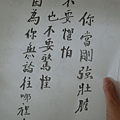 你當剛強壯膽
不要懼怕
也不要驚惶
因為你無論往哪裡